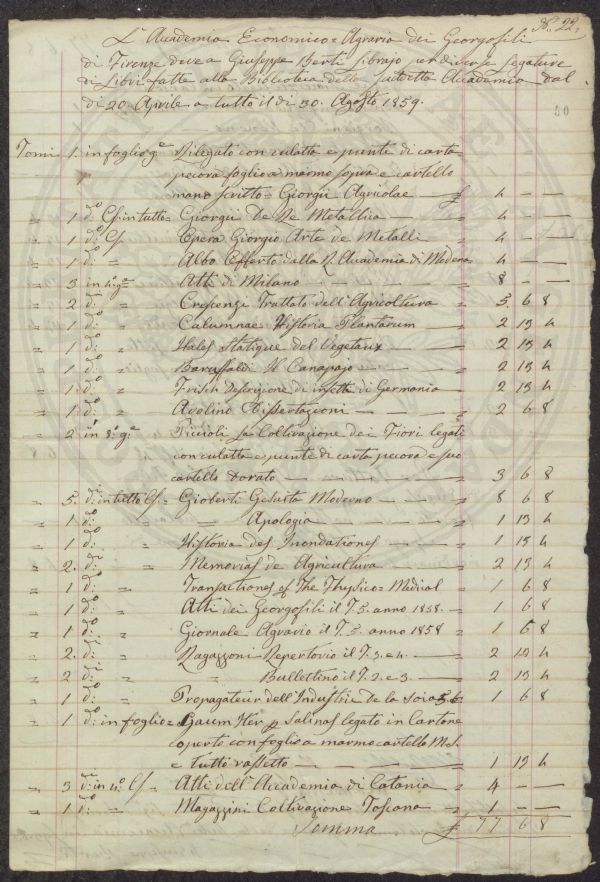 N. 22.
L'Accademia Economico=Agraria dei Georgofili
di Firenze deve a Giuseppe Berti librajo per diverse legature
di Libri fatte alla Biblioteca della suddetta Accademia dal
di 20. Aprile a tutto il dì 30. Agosto 1859.
Tomi 1 in foglio g.e Rilegato con culatta e punte di carta
pecora foglio a marmo sopra e cartello
mano scritto = Georgii Agricolae — £ 4 — —
„ 1 d.o Cs. in tutto = Georgii De Re Metallica — = 4 — —
„ 1 d.o Cs. Opera Giorgio Arte de Metalli — = 4 — —
„ 1 d.o „ Albo Offerto dalla R. Accademia di Modena 4 — —
„ 3 in 4.o g.e Atti di Milano — = 8 — —
„ 2 d.i „ Crescenzi Trattato dell'Agricoltura = 5 6 8
„ 1 d.o „ Calumnae Historia Plantarum = 2 13 4
„ 1 d.o „ Hales Statique del Vegetaux = 2 13 4
„ 1 d.o „ Baruffaldi Il Canapajo — = 2 13 4
„ 1 d.o „ Frisch Descrizione di insetti di Germania = 2 13 4
„ 1 d.o „ Avolino Dissertazioni — = 2 6 8
„ 2 in 8.o g.e Piccioli La Coltivazione dei Fiori legati
con culatta e punte di carta pecora e suo
cartello dorato — = 3 6 8
„ 5. d.i in tutto Cs. = Gioberti Gesuita Moderno — = 8 6 8
„ 1 d.o „ „ Apologia — = 1 13 4
„ 1 d.o „ Historia des Inondationes — = 1 13 4
„ 2. d.i „ Memorias de Agricultura — = 2 13 4
„ 1 d.o „ Transactiones of The Physico=Medical = 1 6 8
„ 1 d.o „ Atti dei Georgofili il T. 5. anno 1858. — = 1 6 8
„ 1 d.o „ Giornale Agrario il T. 5. anno 1858 = 1 6 8
„ 2. d.i „ Ragazzoni Repertorio il T. 3. e 4. — = 2 13 4
„ 2 d.i „ „ Bullettino il T. 2. e 3. — = 2 13 4
„ 1 d.o „ Propagateur dell'Industrie de la soia 5.6. 1 6 8
„ 1 d.o in foglio = Salinas legato in Cartone
coperto con foglio a marmo cartello M.S.
e tutto rassetto — = 1 13 4
„ 3 d.i in 4.o Cs = Atti dell'Accademia di Catania = 4 — —
„ 1 d.o „ Magazzini Coltivazione Toscana = 1 — —
Somma £ 77 6 8